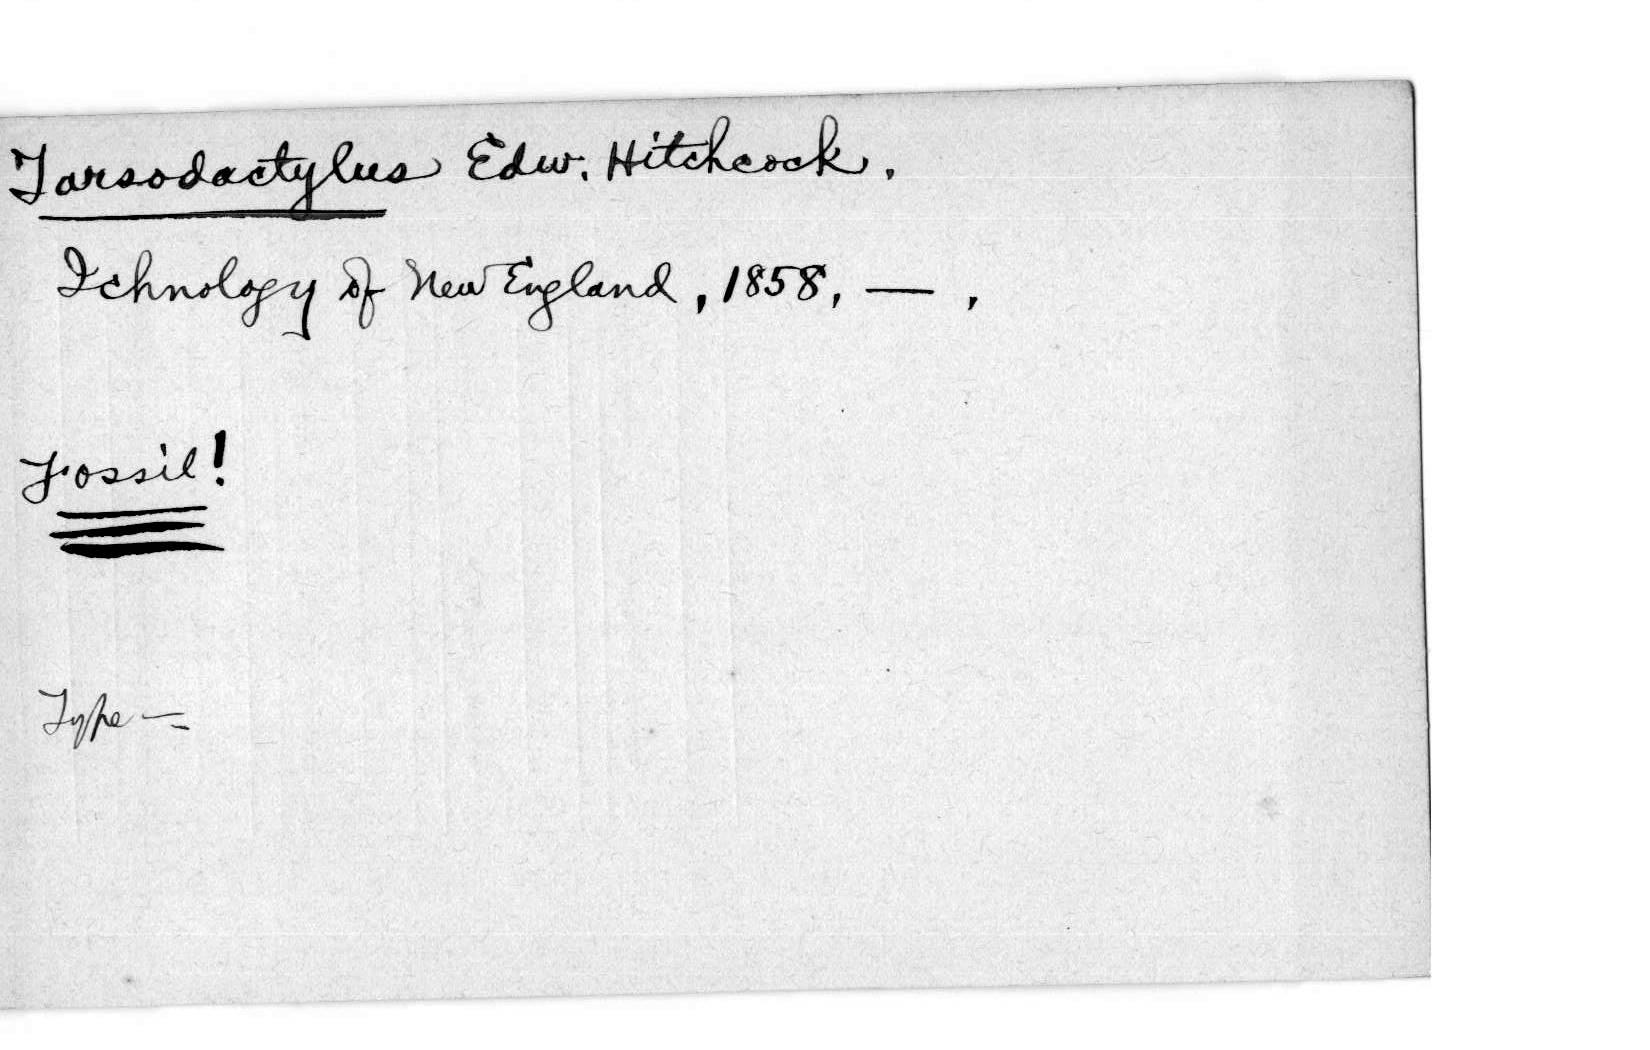 Tarsodactylus Edw. Hitchcock.
Ichnology of New England, 1858, — ,
Fossil!
Type —